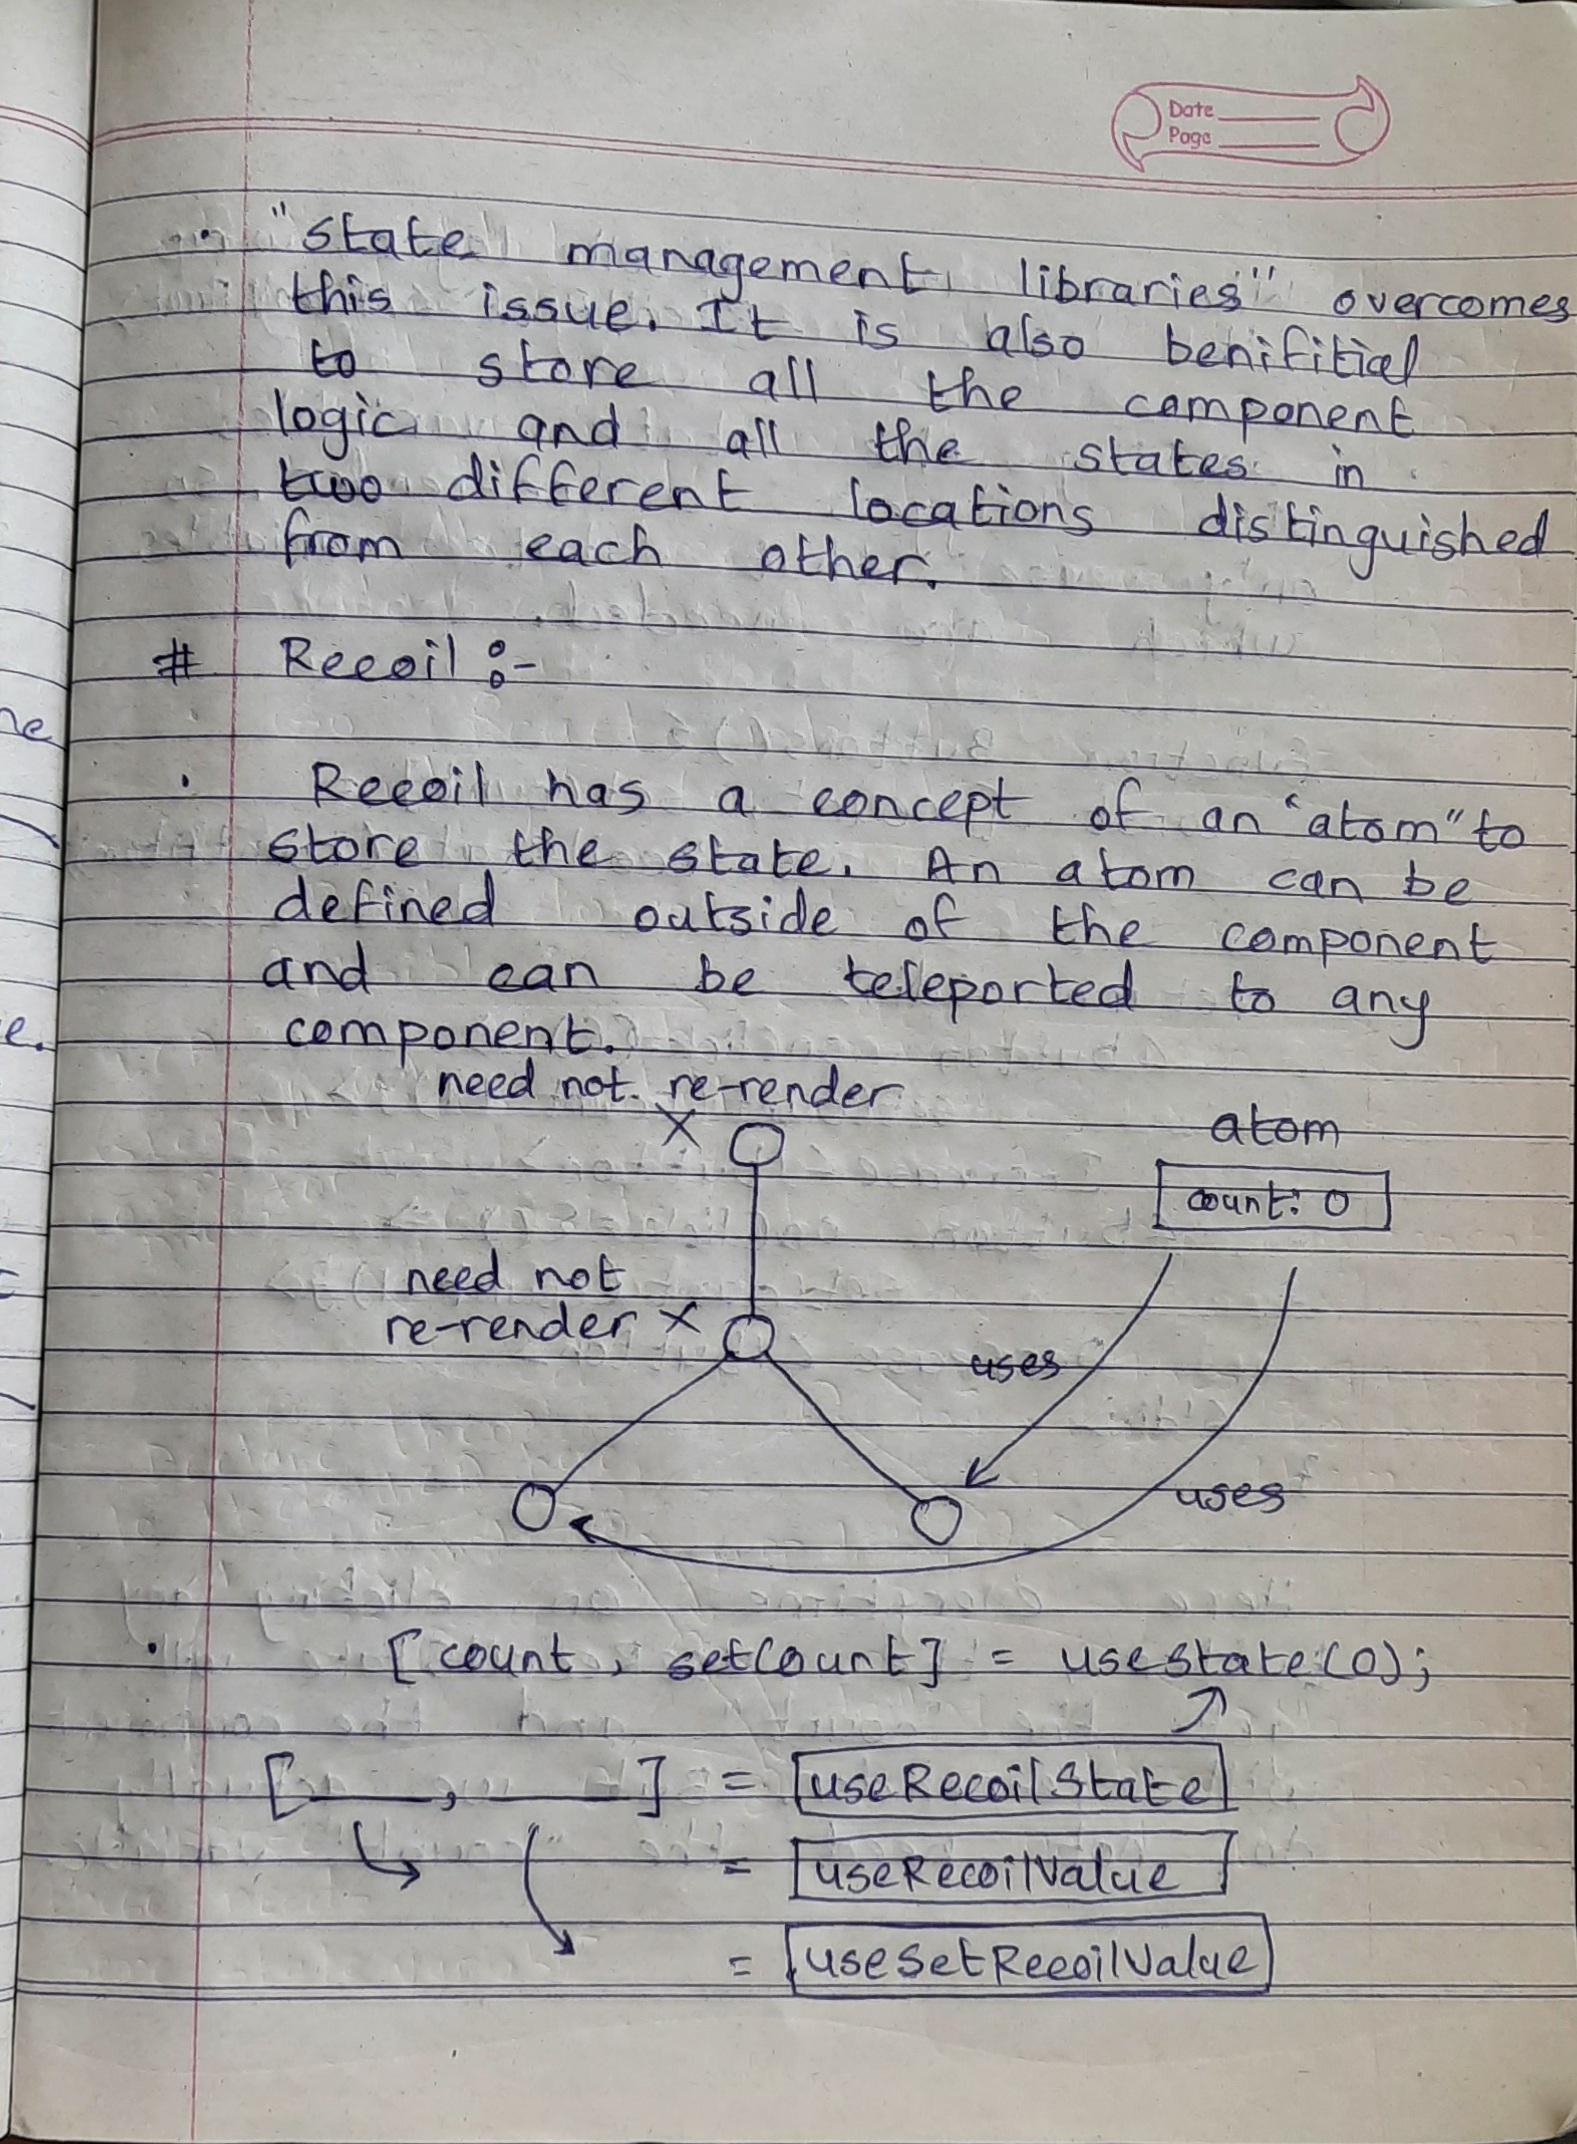 Date
Page
· "state management libraries" overcomes
this issue. It is also benifitial
to store all the component
logic and all the states in
two different locations distinguished
from each other.
# Recoil :-
· Recoil has a concept of an "atom" to
store the state. An atom can be
defined outside of the component
and can be teleported to any
component.
need not re-render
X
atom
count: 0
need not
re-render X
uses
uses
· [count, setCount] = useState(0);
[___, ___] = useRecoilState
= useRecoilValue
= useSetRecoilValue
ne
e.